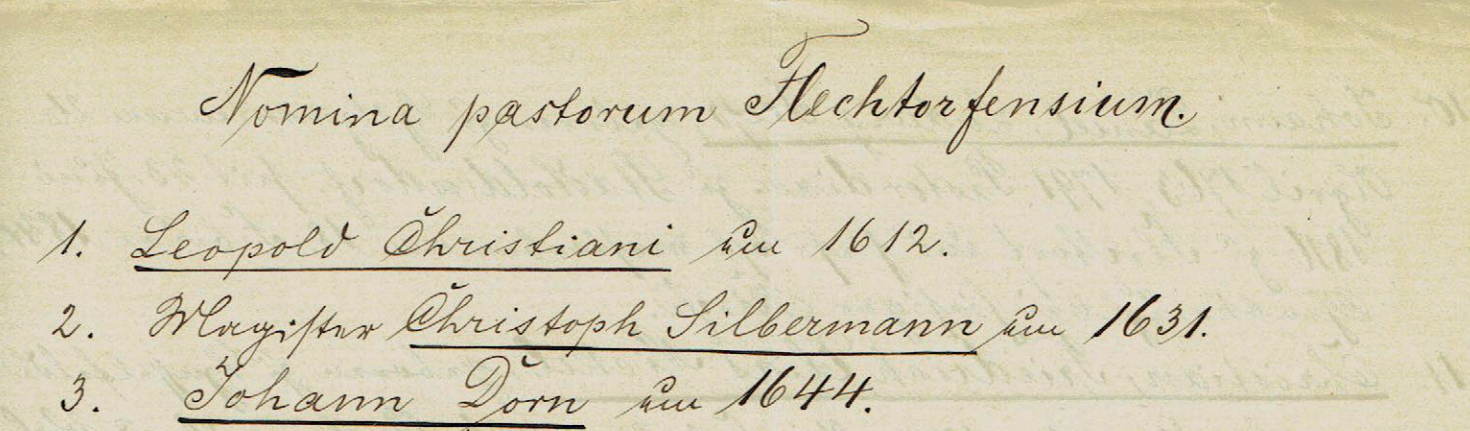 Nomina pastorum Flechtorfensium.
1. Leopold Christiani um 1612.
2. Magister Christoph Silbermann um 1631.
3. Johann Dorn um 1644.